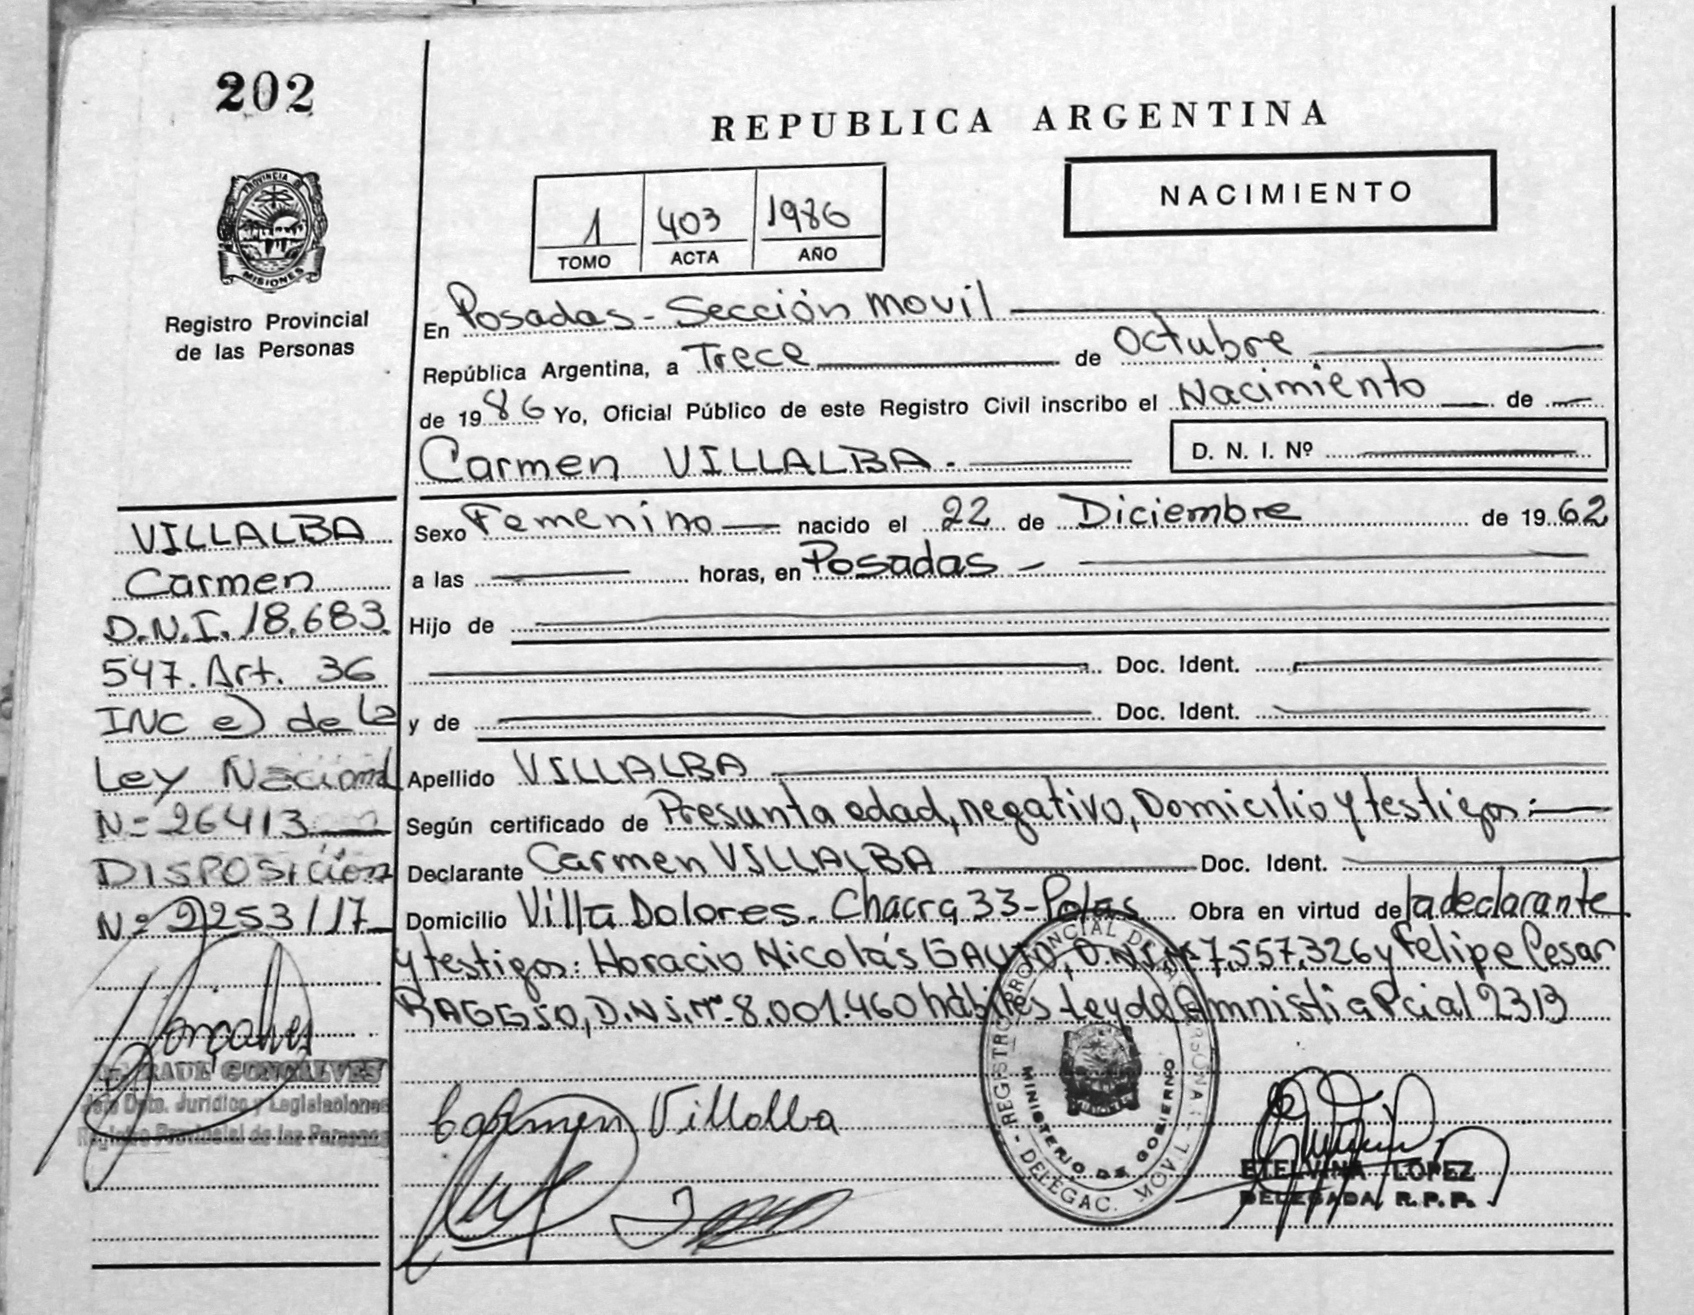 202
REPUBLICA ARGENTINA
PROVINCIA DE
MISIONES
Registro Provincial
de las Personas
1 403 1986
TOMO ACTA AÑO
NACIMIENTO
En Posadas - Sección movil
República Argentina, a Trece de Octubre
de 1986 Yo, Oficial Público de este Registro Civil inscribo el Nacimiento de
Carmen VILLALBA.
D. N. I. Nº
Sexo Femenino nacido el 22 de Diciembre de 1962
a las horas, en Posadas -
Hijo de
Doc. Ident.
y de Doc. Ident.
Apellido VILLALBA
Según certificado de Presunta edad, negativo, Domicilio y testigos:
Declarante Carmen VILLALBA Doc. Ident.
Domicilio Villa Dolores. Chacra 33-Pdas Obra en virtud de la declarante
y testigos: Horacio Nicolás GAUTO, D.N.I. Nº 7.557.326 y Felipe Cesar
BAGGIO, D.N.I. Nº 8.001.460 hábiles Ley de Amnistia Pcial 2313
VILLALBA
Carmen
D.N.I. 18.683.
547. Art. 36
INC e) de la
Ley Nacional
Nº 26413
DISPOSICION
Nº 2253/17
RAUL GONCALVES
Jefe Dpto. Jurídico y Legislaciones
Registro Provincial de las Personas
Carmen Villalba
REGISTRO PROVINCIAL DE LAS PERSONAS
MINISTERIO DE GOBIERNO
DELEGAC. MOVIL
ETELVINA LOPEZ
DELEGADA R.P.P.